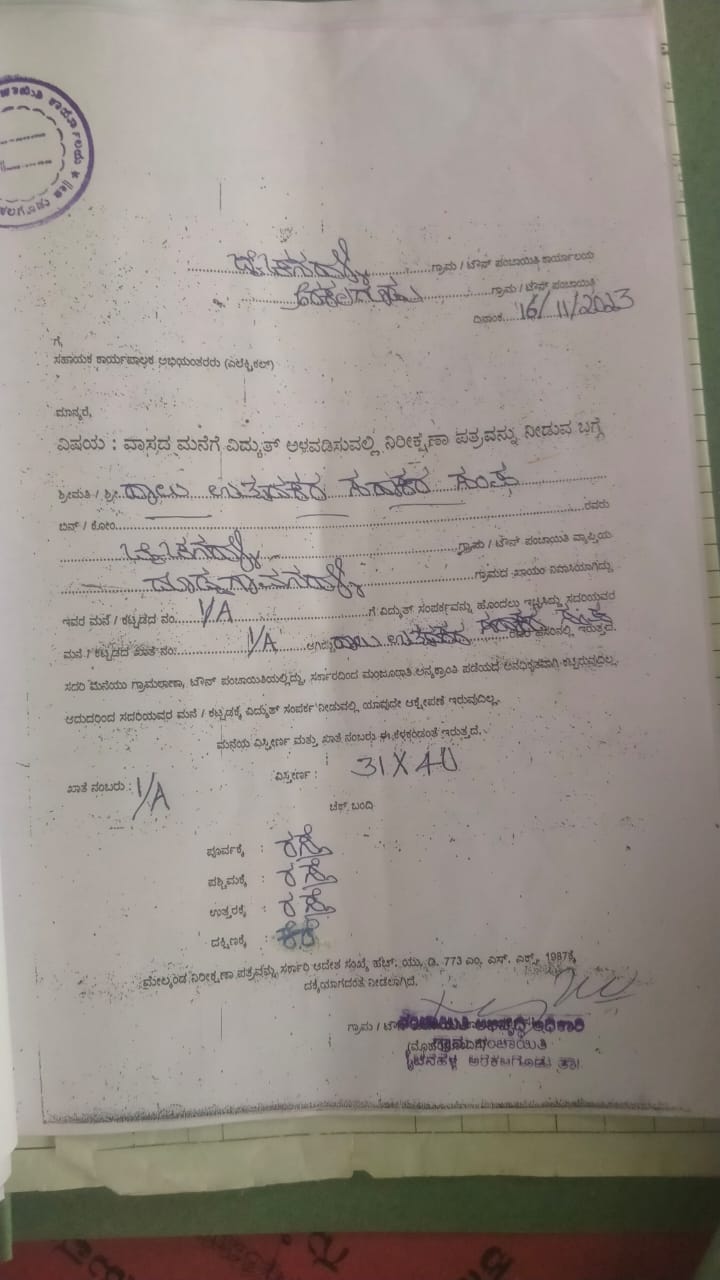 ಗ್ರಾಮ / ಟೌನ್ ಪಂಚಾಯಿತಿ ಕಾರ್ಯಾಲಯ
ಗ್ರಾಮ / ಟೌನ್ ಪಂಚಾಯಿತಿ
ದಿನಾಂಕ 16/11/2023
ಗೆ,
ಸಹಾಯಕ ಕಾರ್ಯಪಾಲಕ ಅಭಿಯಂತರರು (ಎಲೆಕ್ಟ್ರಿಕಲ್)
ಮಾನ್ಯರೆ,
ವಿಷಯ : ವಾಸದ ಮನೆಗೆ ವಿದ್ಯುತ್ ಅಳವಡಿಸುವಲ್ಲಿ ನಿರೀಕ್ಷಣಾ ಪತ್ರವನ್ನು ನೀಡುವ ಬಗ್ಗೆ
ಶ್ರೀಮತಿ / ಶ್ರೀ ಹಾಲು ಉತ್ಪಾದಕರ ಸಹಕಾರ ಸಂಘ
ಬಿನ್ / ಕೋಂ ರವರು
ಗ್ರಾಮ / ಟೌನ್ ಪಂಚಾಯಿತಿ ವ್ಯಾಪ್ತಿಯ
ಗ್ರಾಮದ ಖಾಯಂ ನಿವಾಸಿಯಾಗಿದ್ದು
ಇವರ ಮನೆ / ಕಟ್ಟಡದ ನಂ. 1/A ಗೆ ವಿದ್ಯುತ್ ಸಂಪರ್ಕವನ್ನು ಹೊಂದಲು ಇಚ್ಛಿಸಿದ್ದು ಸದರಿಯವರ
ಮನೆ / ಕಟ್ಟಡದ ಖಾತೆ ನಂ: 1/A ಆಗಿದ್ದು ಹಾಲು ಉತ್ಪಾದಕರ ಸಹಕಾರ ಸಂಘ ರವರ ಹೆಸರಿನಲ್ಲಿ ಇರುತ್ತದೆ.
ಸದರಿ ಮನೆಯು ಗ್ರಾಮಠಾಣಾ, ಟೌನ್ ಪಂಚಾಯಿತಿಯಲ್ಲಿದ್ದು, ಸರ್ಕಾರದಿಂದ ಮಂಜೂರಾತಿ ಅನ್ಯಕ್ರಾಂತಿ ಪಡೆಯದೆ ಅನಧಿಕೃತವಾಗಿ ಕಟ್ಟಿರುವುದಿಲ್ಲ.
ಆದುದರಿಂದ ಸದರಿಯವರ ಮನೆ / ಕಟ್ಟಡಕ್ಕೆ ವಿದ್ಯುತ್ ಸಂಪರ್ಕ ನೀಡುವಲ್ಲಿ ಯಾವುದೇ ಆಕ್ಷೇಪಣೆ ಇರುವುದಿಲ್ಲ.
ಮನೆಯ ವಿಸ್ತೀರ್ಣ ಮತ್ತು ಖಾತೆ ನಂಬರು ಈ ಕೆಳಕಂಡಂತೆ ಇರುತ್ತದೆ.
ಖಾತೆ ನಂಬರು : 1/A ವಿಸ್ತೀರ್ಣ : 31 X 40
ಚೆಕ್ ಬಂದಿ
ಪೂರ್ವಕ್ಕೆ : ರಸ್ತೆ
ಪಶ್ಚಿಮಕ್ಕೆ : ರಸ್ತೆ
ಉತ್ತರಕ್ಕೆ : ರಸ್ತೆ
ದಕ್ಷಿಣಕ್ಕೆ : ಕೆರೆ
ಮೇಲ್ಕಂಡ ನಿರೀಕ್ಷಣಾ ಪತ್ರವನ್ನು ಸರ್ಕಾರಿ ಆದೇಶ ಸಂಖ್ಯೆ ಹೆಚ್. ಯು. ಡಿ. 773 ಎಂ. ಎನ್. ಎಕ್ಸ್. 1987ಕ್ಕೆ
ದಕ್ಕೆಯಾಗದಂತೆ ನೀಡಲಾಗಿದೆ.
ಗ್ರಾಮ / ಟೌನ್
ಪಂಚಾಯಿತಿ ಅಭಿವೃದ್ಧಿ ಅಧಿಕಾರಿ
ಗ್ರಾಮ ಪಂಚಾಯಿತಿ
ಅರಕಲಗೂಡು ತಾ.